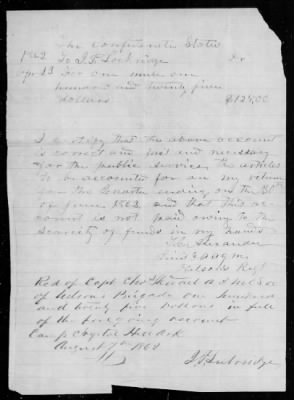 The Confederate States
1862 To J. P. Lockridge Dr
Apr 13 For one mule one
hundred and twenty five
dollars $125,00
I certify that the above account
is correct and just and necessary
for the public service the articles
to be accounted for on my return
for the Quarter ending on the 30th
of June 1862 and that this ac
count is not paid owing to the
scarcity of funds in my hands
Nelsons Regt
Recd of Capt Chas
of Nelsons Brigade one hundred
and twenty five dollars in full
of the foregoing account
Camp
August 7th 1862